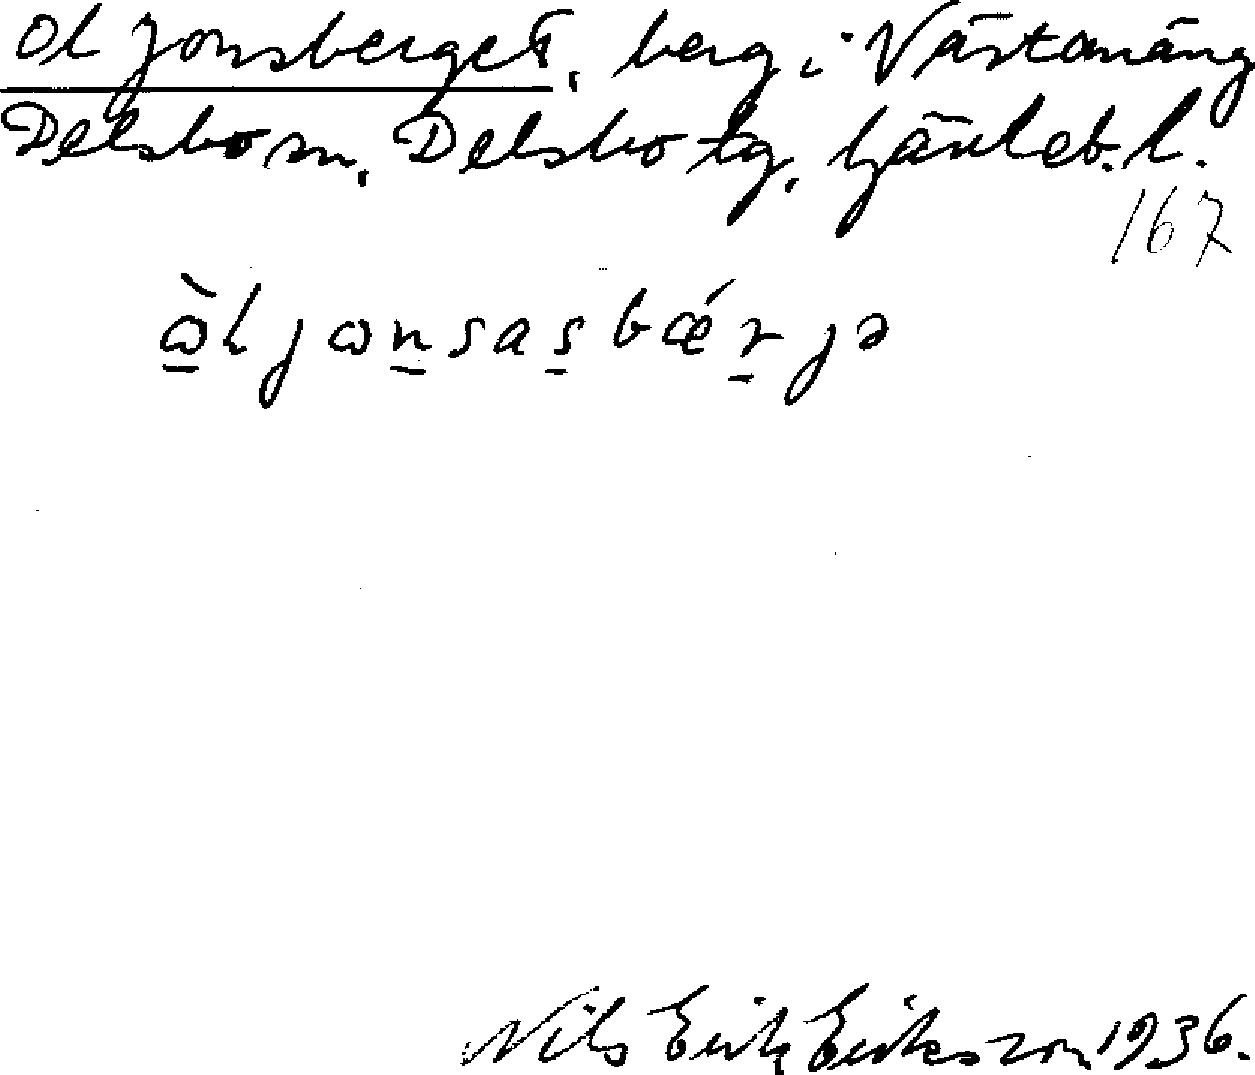 Ol Jonsberget, berg i Västanäng
Delsbo sn, Delsbo tg, Gävleb. l.
167
ὼl jωnsasbǽrjə
Nils Erik Eriksson 1936.